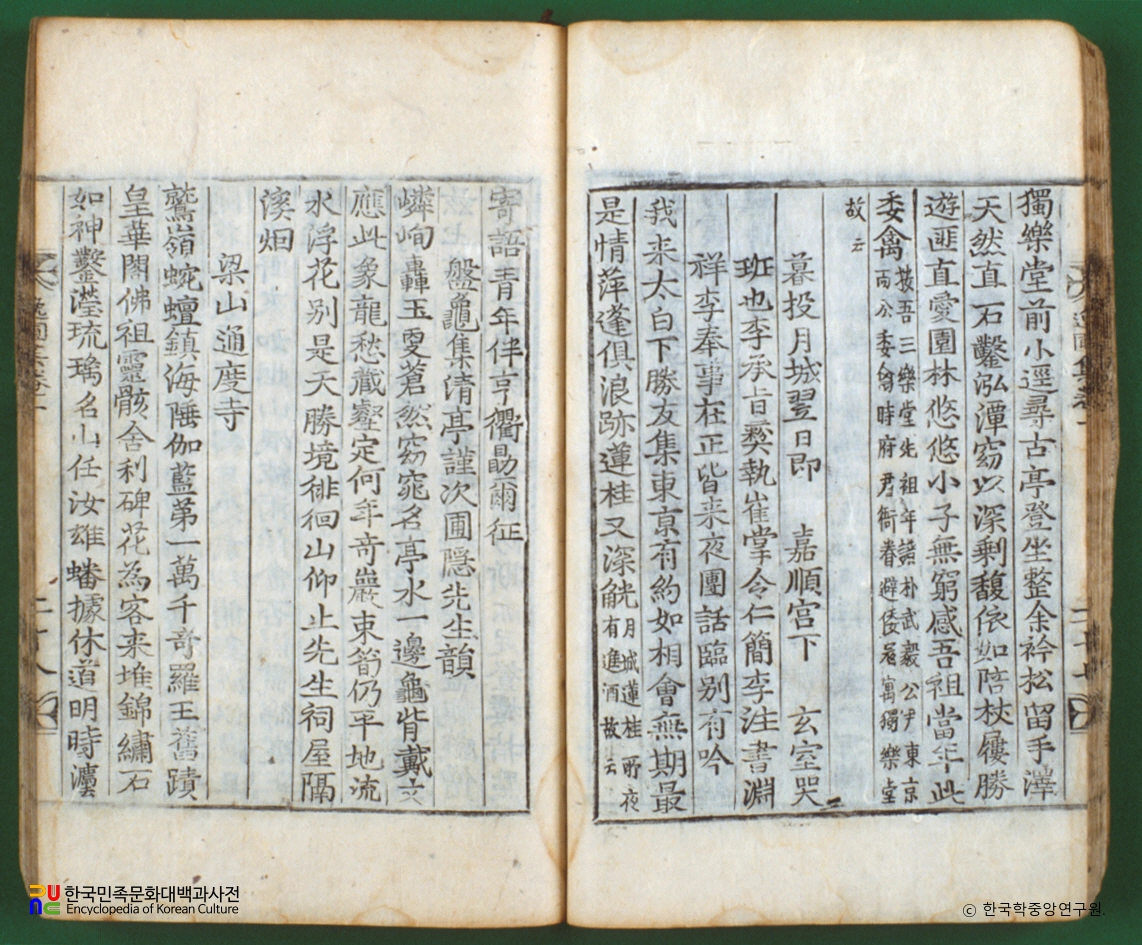 獨樂堂前小逕尋古亭登坐整余衿松留手澤
天然直石鑿泓潭窈以深剩馥依如陪杖屨勝
遊匪直愛園林悠悠小子無窮感吾祖當年此
委禽
按吾三樂堂先祖年譜朴武毅公尹東京
兩公委禽時府君衙眷避倭寇寓獨樂堂
故云
暮投月城翌日即 嘉順宫下 玄室哭
班也李承旨彛執崔掌令仁簡李注書淵
祥李奉事在正皆来夜團話臨别有吟
我来太白下勝友集東京有約如相會無期最
是情萍逢俱浪跡蓮桂又深觥
月城蓮桂所夜
有進酒故云
寄語青年伴亨衢勗爾征
盤龜集清亭謹次圃隠先生韻
嶙峋轟玉叓蒼然窈窕名亭水一邊龜背戴文
應此象龍愁藏壑定何年竒巖束笋仍平地流
水浮花别是天勝境徘徊山仰止先生祠屋隔
溪烟
梁山通度寺
鷲嶺蜿蟺鎮海陲伽藍第一萬千竒羅王舊蹟
皇華閣佛祖靈骸舍利碑花為客来堆錦繡石
如神鑿瀅琉璃名山任汝雄蟠據休道明時灋
逸圃集卷一
二十八
二十七
한국민족문화대백과사전
Encyclopedia of Korean Culture
ⓒ 한국학중앙연구원.